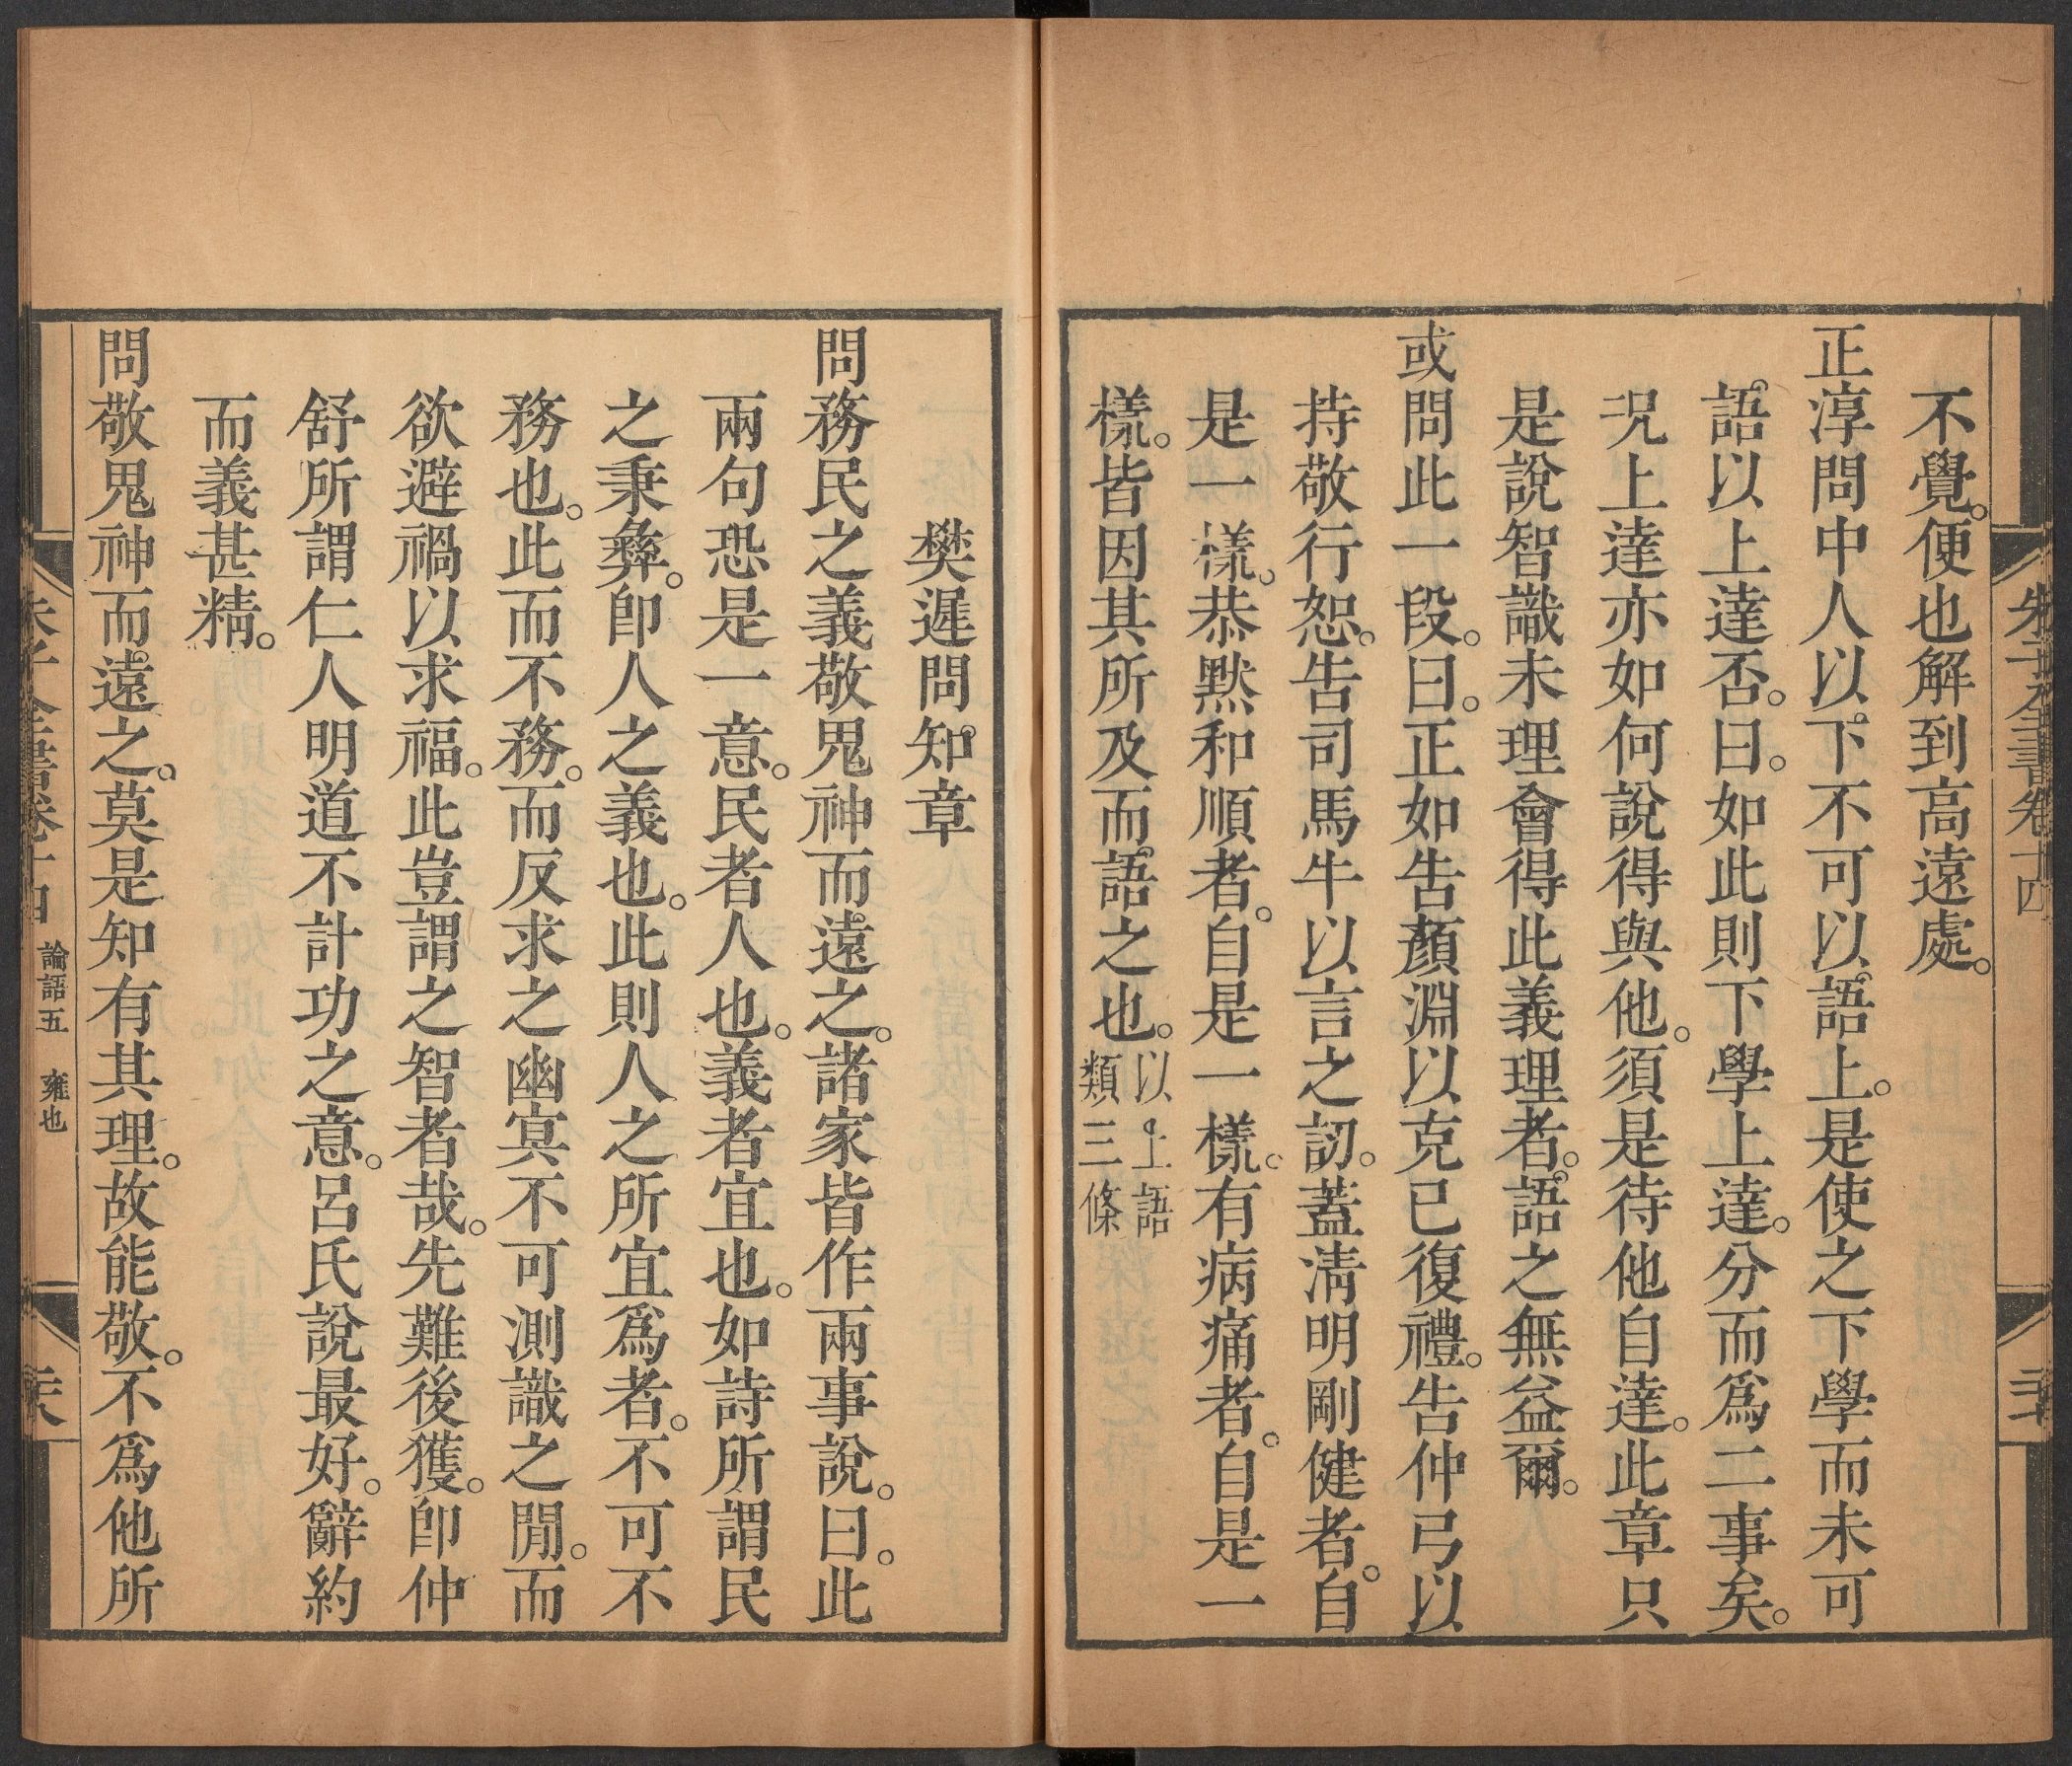 不覺。便也解到高遠處。
正淳問中人以下不可以語上。是使之下學而未可
語以上達否。曰。如此則下學上達。分而爲二事矣。
況上達亦如何說得與他。須是待他自達。此章只
是說智識未理會得此義理者。語之無益爾。
或問此一段。曰。正如告顏淵以克已復禮。告仲弓以
持敬行恕。告司馬牛以言之訒。蓋淸明剛健者。自
是一樣。恭默和順者。自是一樣。有病痛者。自是一
樣。皆因其所及而語之也。以上語類三條
樊遲問知章
問務民之義敬鬼神而遠之。諸家皆作兩事說。曰。此
兩句恐是一意。民者人也。義者宜也。如詩所謂民
之秉彝。卽人之義也。此則人之所宜爲者。不可不
務也。此而不務。而反求之幽冥不可測識之閒。而
欲避禍以求福。此豈謂之智者哉。先難後獲。卽仲
舒所謂仁人明道不計功之意。呂氏說最好。辭約
而義甚精。
問敬鬼神而遠之。莫是知有其理。故能敬。不爲他所
論語五 雍也